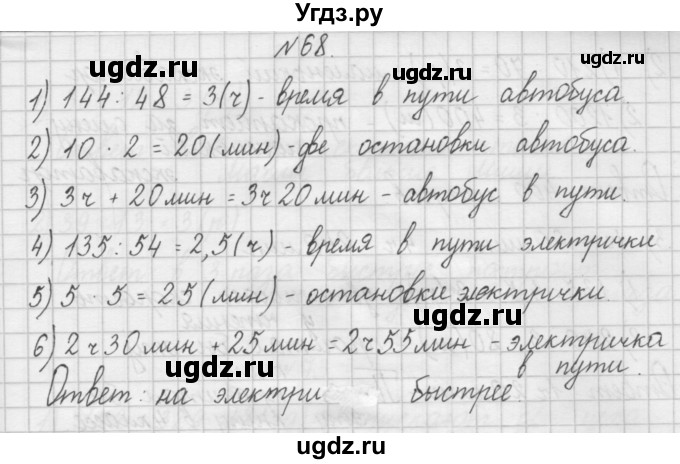 Угдз.ру
№68.
ugdz.ru ugdz.ru
1) 144 : 48 = 3 (ч) - время в пути автобуса.
2) 10 · 2 = 20 (мин) - две остановки автобуса.
ugdz.ru ugdz.ru
3) 3ч + 20мин = 3ч 20мин - автобус в пути.
4) 135 : 54 = 2,5 (ч) - время в пути электрички
5) 5 5 = 25 (мин) - остановки электрички.
ugdz.ru ugdz.ru
6) 2ч 30мин + 25мин = 2ч 55мин - электричка
в пути.
Ответ: на электри быстрее.
ugdz.ru
ugdz.ru